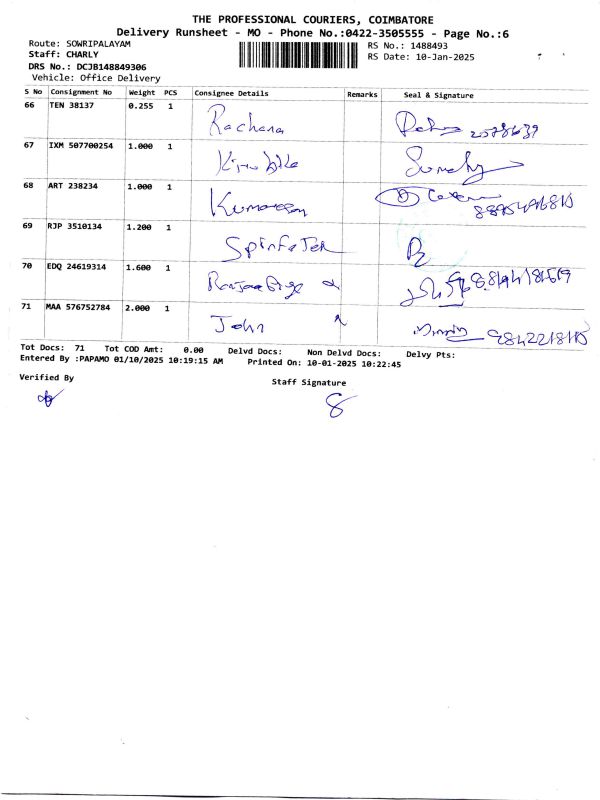 THE PROFESSIONAL COURIERS, COIMBATORE
Delivery Runsheet - MO - Phone No.:0422-3505555 - Page No.:6
Route: SOWRIPALAYAM RS No.: 1488493
Staff: CHARLY RS Date: 10-Jan-2025
DRS No.: DCJB148849306
Vehicle: Office Delivery
S No Consignment No Weight PCS Consignee Details Remarks Seal & Signature
66 TEN 38137 0.255 1
Rachana
67 IXM 507700254 1.000 1
68 ART 238234 1.000 1
Kumaresan
69 RJP 3510134 1.200 1
70 EDQ 24619314 1.600 1
71 MAA 576752784 2.000 1
John
Tot Docs: 71 Tot COD Amt: 0.00 Delvd Docs: Non Delvd Docs: Delvy Pts:
Entered By :PAPAMO 01/10/2025 10:19:15 AM Printed On: 10-01-2025 10:22:45
Verified By Staff Signature